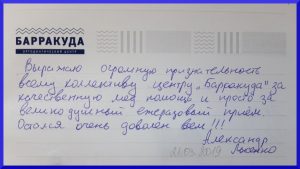 БАРРАКУДА
ОРТОДОНТИЧЕСКИЙ ЦЕНТР
Выражаю огромную признательность
всему коллективу центру „Барракуда" за
качественную мед помощь и просто за
великодушный ежеразовый приём.
Остался очень доволен всем!!!
Александр
21.03.2019